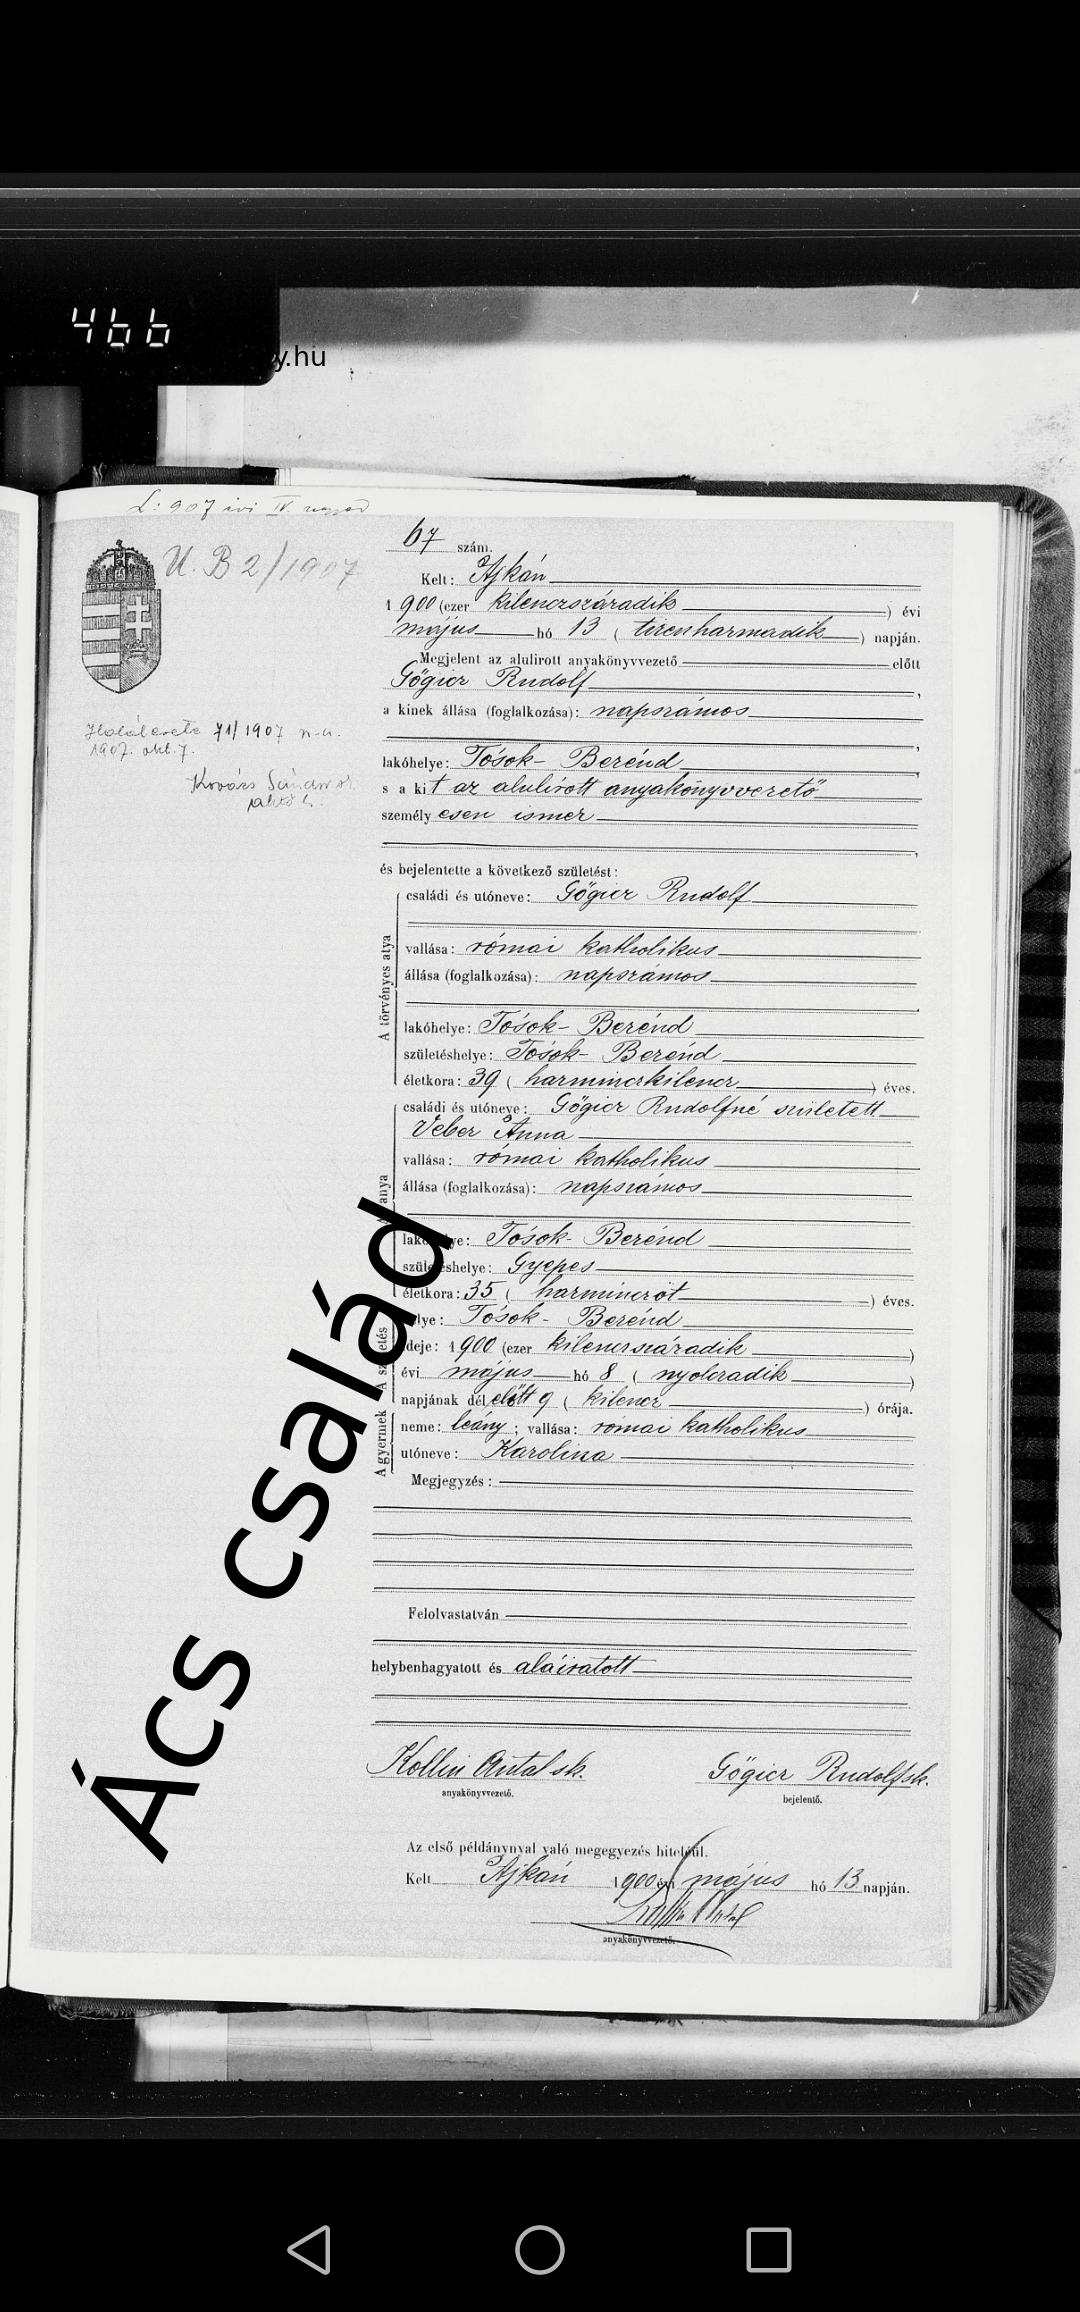 466
y.hu
L: 907 évi IV.
U. B 2/1907
67 szám.
Kelt: Ajkán
1900 (ezer kilenczszázadik) évi
május hó 13 (tizenharmadik) napján.
Megjelent az alulirott anyakönyvvezető előtt
Gőgicz Rudolf,
a kinek állása (foglalkozása): napszámos
,
lakóhelye: Tósok-Berénd,
s a kit az alulírott anyakönyvvezető
személyesen ismer
,
és bejelentette a következő születést:
A törvényes atya
családi és utóneve: Gőgicz Rudolf
vallása: római katholikus
állása (foglalkozása): napszámos
,
lakóhelye: Tósok-Berénd
születéshelye: Tósok-Berénd
életkora: 39 (harminczkilencz) éves.
anya
családi és utóneve: Gőgicz Rudolfné született
Veber Anna
vallása: római katholikus
állása (foglalkozása): napszámos
lakóhelye: Tósok-Berénd
születéshelye: Gyepes
életkora: 35 (harminczöt) éves.
A születés
helye: Tósok-Berénd
ideje: 1900 (ezer kilenczszázadik)
évi május hó 8 (nyolczadik)
napjának délelőtt 9 (kilencz) órája.
A gyermek
neme: leány; vallása: római katholikus
utóneve: Karolina
Megjegyzés:
Felolvastatván
helybenhagyatott és aláíratott
Kollin Antal sk. Gőgicz Rudolf sk.
anyakönyvvezető. bejelentő.
Az első példánynyal való megegyezés hiteléül.
Kelt Ajkán 1900 évi május hó 13 napján.
anyakönyvvezető.
Halálesete 71/1907
1907. okt. 7.
Kovács Sándor
Ács család